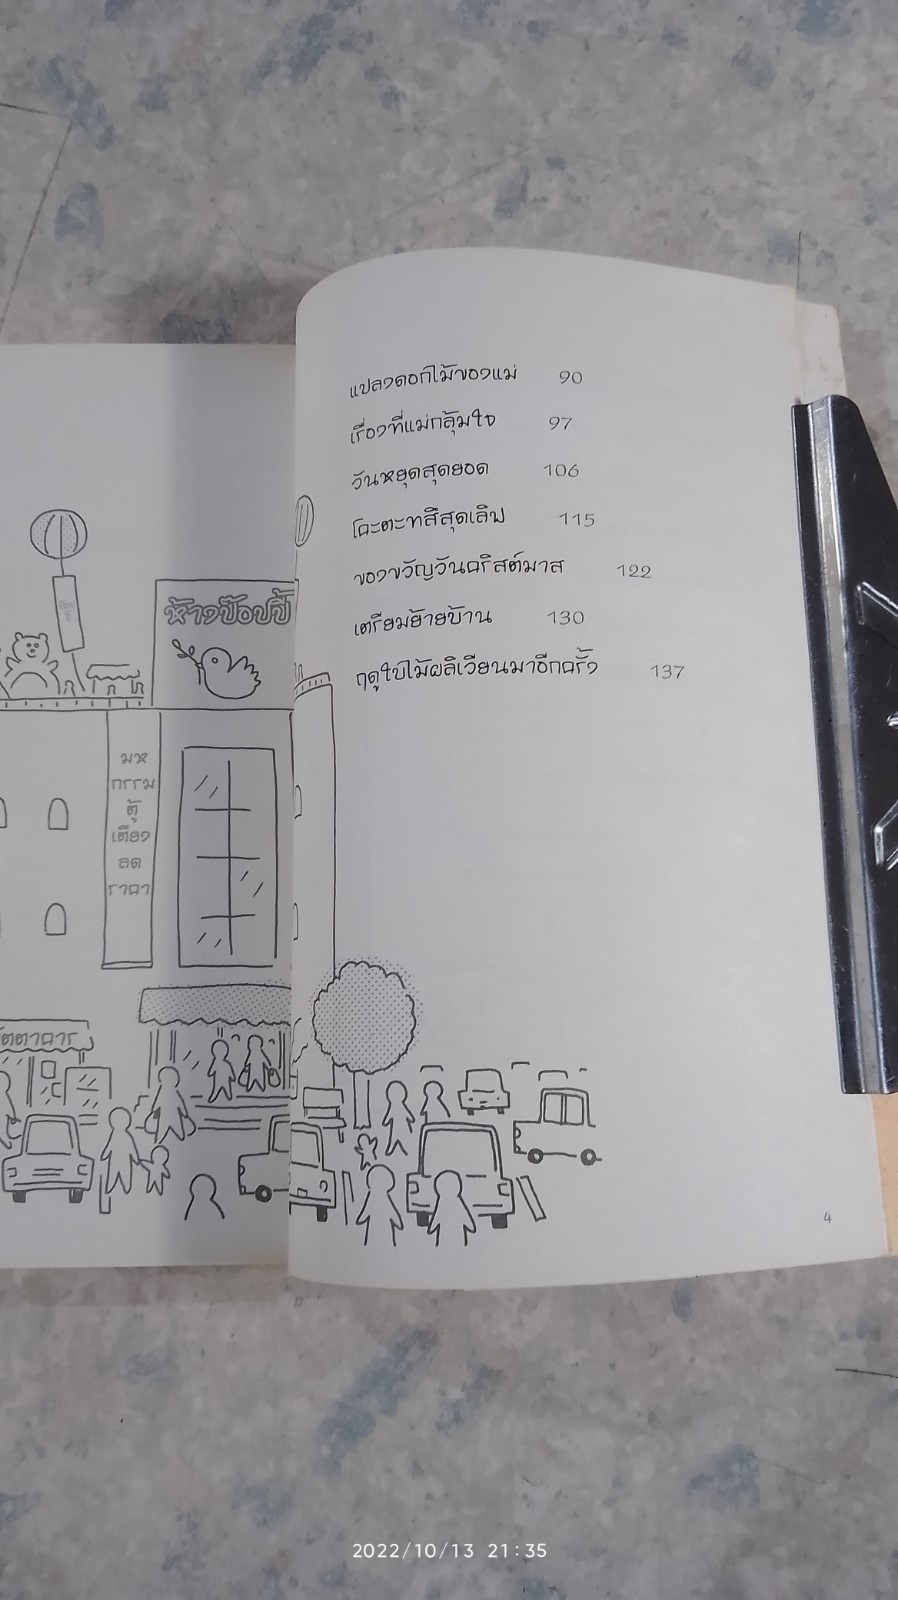 แปลงดอกไม้ของแม่ 90
เรื่องที่แม่กลุ้มใจ 97
วันหยุดสุดยอด 106
โคะตะทสึสุดเลิฟ 115
ของขวัญวันคริสต์มาส 122
เตรียมย้ายบ้าน 130
ฤดูใบไม้ผลิเวียนมาอีกครั้ง 137
ห้างป๊อปปี้
มห
กรรม
ตู้
เตียง
ลด
ราคา
ัตตาคาร
4
2022/10/13 21:35